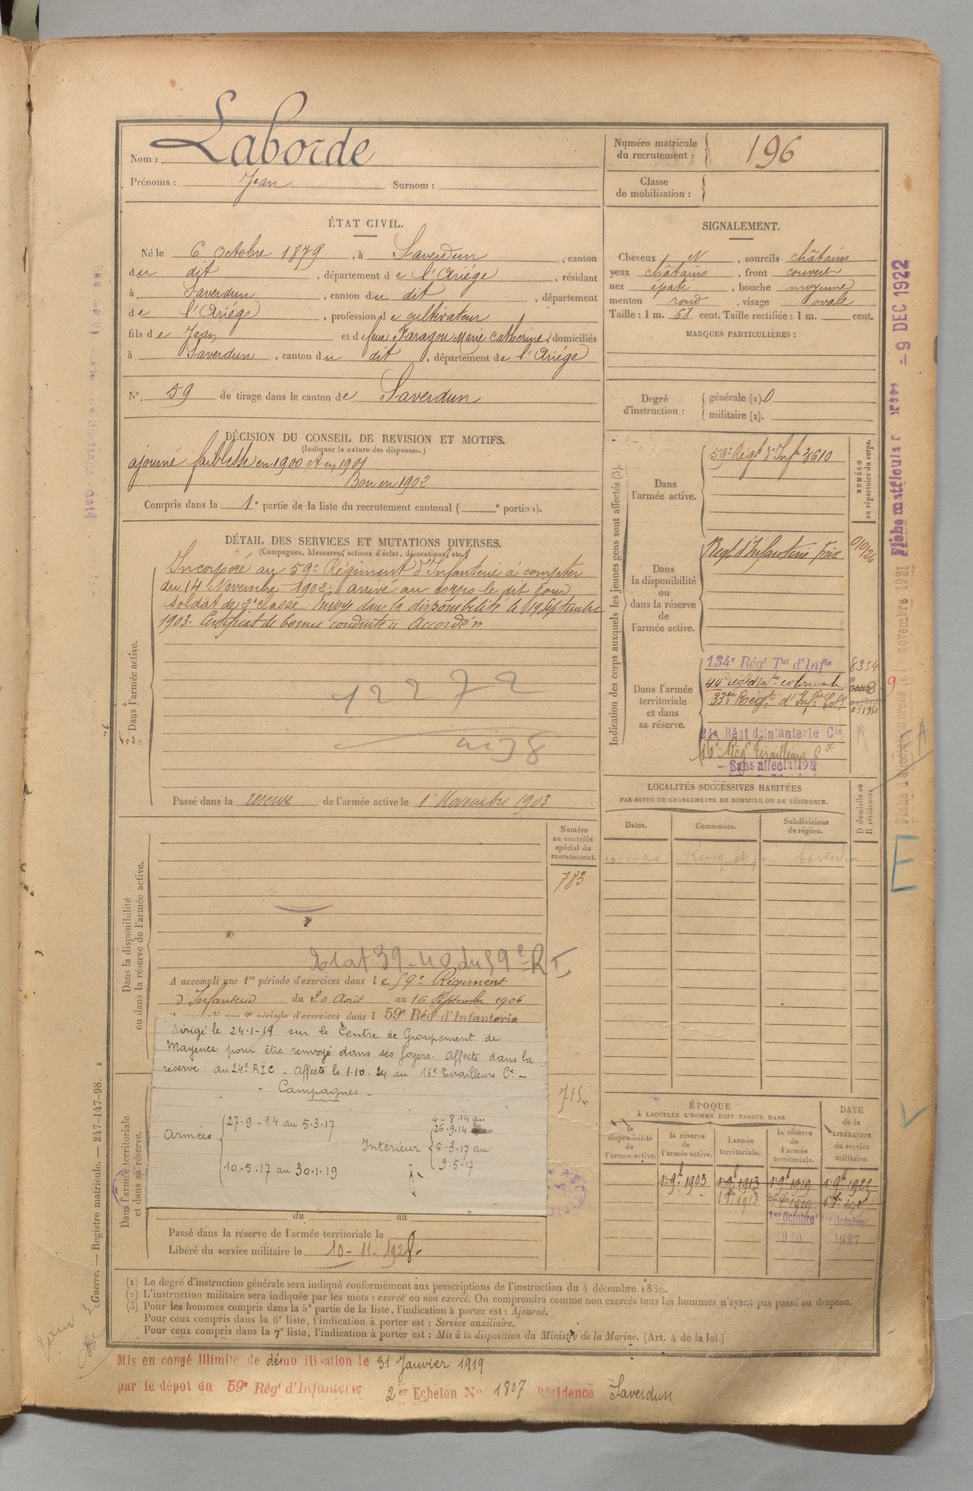 Nom : Laborde
Prénoms : Jean Surnom :
Numéro matricule
du recrutement : 196
Classe
de mobilisation :
ÉTAT CIVIL.
Né le 6 octobre 1879, à Saverdun, canton
du dit, département de l'Ariége, résidant
à Saverdun, canton du dit, département
de l'Ariége, profession de cultivateur
fils de Jean et de feue Faragou Marie Catherine domiciliés
à Saverdun, canton du dit, département de l'Ariége
N° 59 de tirage dans le canton de Saverdun
SIGNALEMENT.
Cheveux N, sourcils châtains
yeux châtains, front couvert
nez épaté, bouche moyenne
menton rond, visage ovale
Taille : 1 m. 61 cent. Taille rectifiée : 1 m. cent.
MARQUES PARTICULIÈRES :
Degré
d'instruction :
générale (1) 0
militaire (2).
DÉCISION DU CONSEIL DE REVISION ET MOTIFS.
(Indiquer la nature des dispenses.)
ajourné faiblesse en 1900 et en 1901
Bon en 1902
Compris dans la 1e partie de la liste du recrutement cantonal ( e portion).
DÉTAIL DES SERVICES ET MUTATIONS DIVERSES.
(Campagnes, blessures, actions d'éclat, décorations, etc.)
Dans l'armée active.
Incorporé au 59e Régiment d'Infanterie à compter
du 14 Novembre 1902, arrivé au corps le dit jour
Soldat de 2e classe. Envoyé dans la disponibilité le 19 Septembre
1903. Certificat de bonne conduite « Accordé »
12272
Passé dans la réserve de l'armée active le 1er Novembre 1903
Indication des corps auxquels les jeunes gens sont affectés (3).
Dans
l'armée active.
59e Régt d'Infie 3610
NUMÉRO
au répertoire du corps.
Dans
la disponibilité
ou
dans la réserve
de
l'armée active.
Régt d'Infanterie Foix
Dans l'armée
territoriale
et dans
sa réserve.
134e Régt Tal d'Infie 8334
44e
33e Régt d'Infie Colle
Régt d'Infanterie Cle
16e Régt Tirailleurs
Sans affectation
LOCALITÉS SUCCESSIVES HABITÉES
PAR SUITE DU CHANGEMENTS DE DOMICILE OU DE RÉSIDENCE.
Dates.
Communes.
Subdivisions
de région.
D domicile ou
R résidence.
Numéro
au contrôle
spécial du
recrutement.
783
715
Dans la disponibilité
ou dans la réserve de l'armée active.
39-40 du 59e RI
A accompli une 1re période d'exercices dans le 59e Régiment
d'Infanterie du 20 Août au 16 Septembre 1906
59e Rég d'Infanterie
Dirigé le 24-1-19 sur le Centre de Groupement de
Mayence pour être renvoyé dans ses foyers. Affecté dans la
réserve au 24e RIC - Affecté le 1-10-24 au 16e Tirailleurs
- Campagnes -
Armées
27-9-14 au 5-3-17
10-5-17 au 30-1-19
Intérieur
4-8-14 au
26-9-14
6-3-17 au
9-5-17
Dans l'armée territoriale
et dans sa réserve.
du au
Passé dans la réserve de l'armée territoriale le
Libéré du service militaire le 10-11-1928.
ÉPOQUE
À LAQUELLE L'HOMME DOIT PASSER DANS
la
disponibilité
de
l'armée active.
la réserve
de
l'armée active.
l'armée
territoriale.
la réserve
de
l'armée
territoriale.
DATE
de la
LIBÉRATION
du service
militaire.
1903 1913 1919
1913 1919
1er Octobre
1920 1927
(1) Le degré d'instruction générale sera indiqué conformément aux prescriptions de l'instruction du 4 décembre 1889.
(2) L'instruction militaire sera indiquée par les mots : exercé ou non exercé. On comprendra comme non exercés tous les hommes n'ayant pas passé au drapeau.
(3) Pour les hommes compris dans la 5e partie de la liste, l'indication à porter est : Ajourné.
Pour ceux compris dans la 6e liste, l'indication à porter est : Service auxiliaire.
Pour ceux compris dans la 7e liste, l'indication à porter est : Mis à la disposition du Ministre de la Marine. (Art. 4 de la loi.)
Mis en congé illimité de démobilisation le 31 Janvier 1919
par le dépôt du 59e Régt d'Infanterie 2er Echelon N° 1807 Résidence Saverdun
Guerre. — Registre matricule. — 247-147-98.
9 DEC 1922